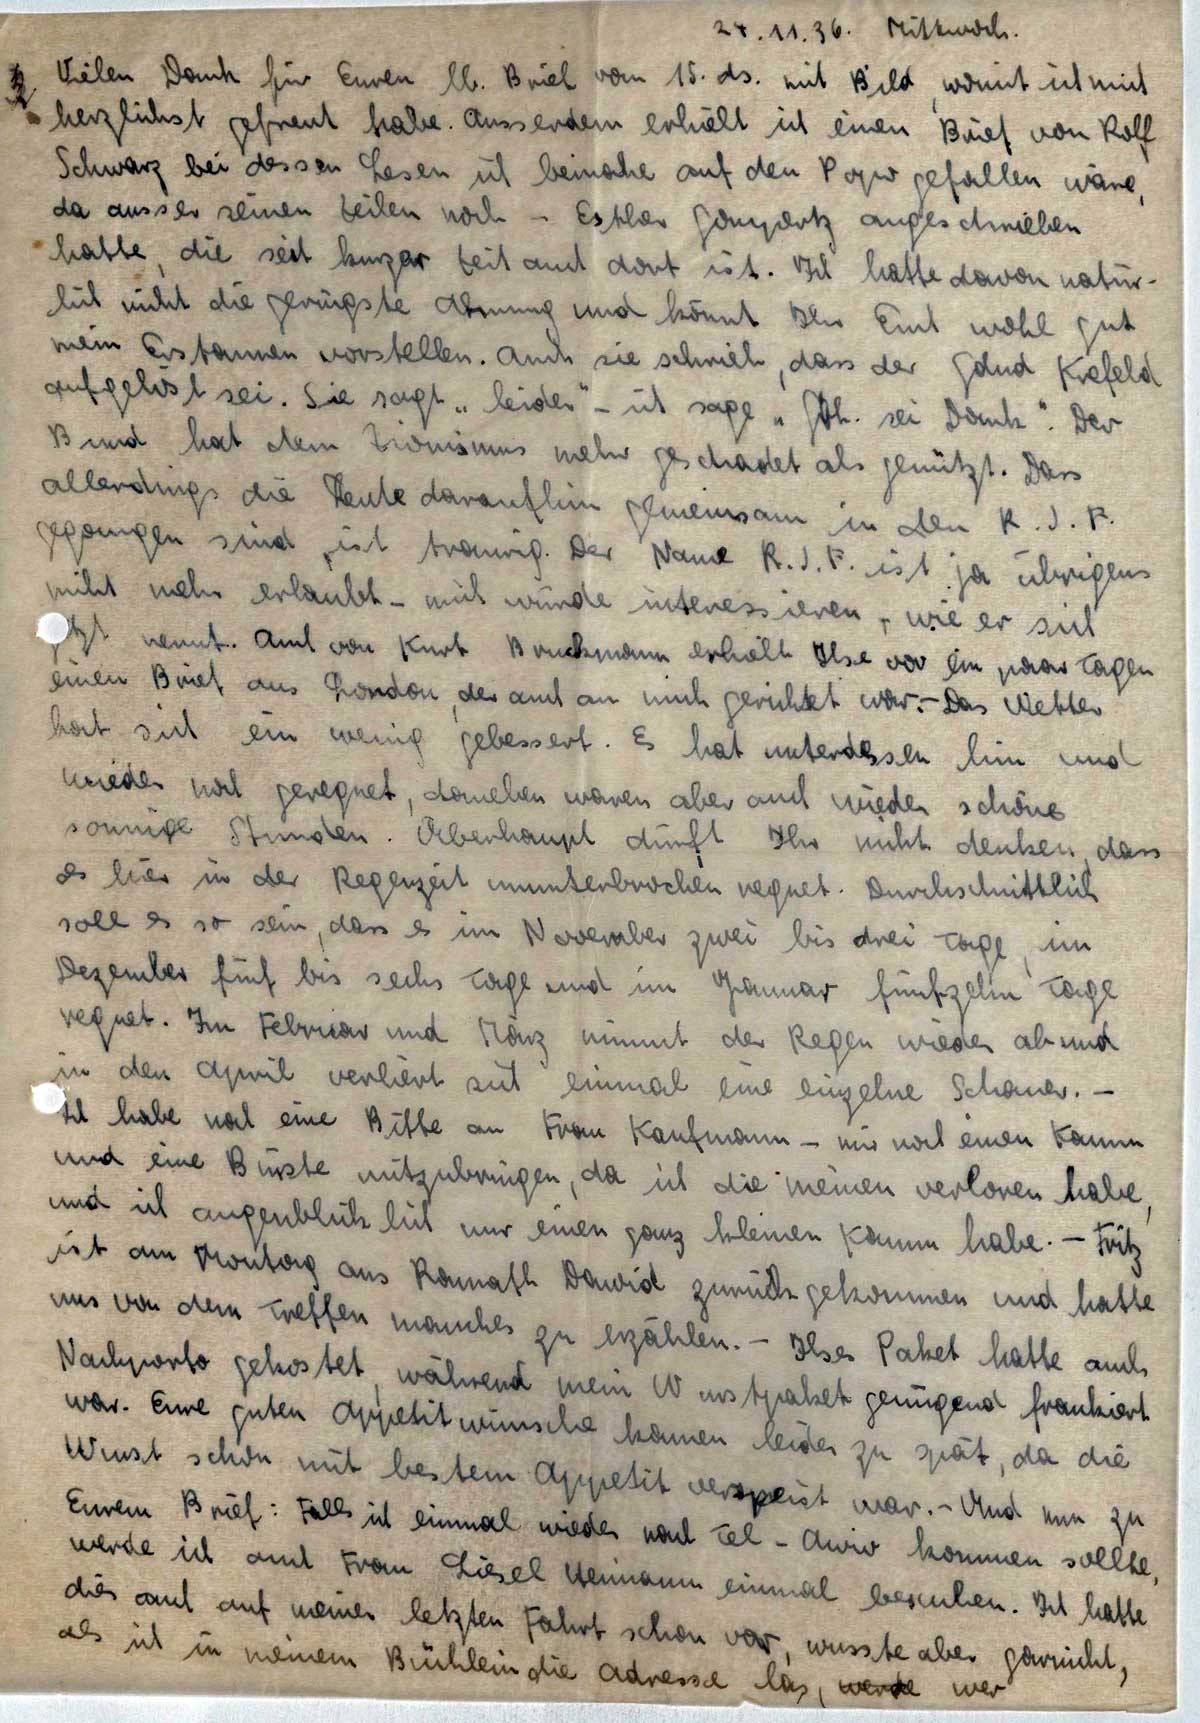 24.11.36. Mittwoch.
Vielen Dank für Euren lb. Brief vom 15. ds. mit Bild, womit ich mich
herzlichst gefreut habe. Ausserdem erhielt ich einen Brief von Rolf
Schwarz bei dessen Lesen ich beinahe auf den Popo gefallen wäre,
da ausser seinen Zeilen noch – Esther Gompertz angeschrieben
hatte, die seit kurzer Zeit auch dort ist. Ich hatte davon natür-
lich nicht die geringste Ahnung und könnt Ihr Euch wohl gut
mein Erstaunen vorstellen. Auch sie schrieb, dass der Gdud Krefeld
aufgelöst sei. Sie sagt „leider“ – ich sage „Gtt. sei Dank“. Der
Bund hat dem Zionismus mehr geschadet als genützt. Dass
allerdings die Leute daraufhin gemeinsam in den R.J.F.
gegangen sind, ist traurig. Der Name R.J.F. ist ja übrigens
nicht mehr erlaubt – mich würde interessieren, wie er sich
jetzt nennt. Auch von Kurt Bruckmann erhielt Ilse vor ein paar Tagen
einen Brief aus London, der auch an mich gerichtet war. – Das Wetter
hat sich ein wenig gebessert. Es hat unterdessen hin und
wieder noch geregnet, daneben waren aber auch wieder schöne
sonnige Stunden. Überhaupt dürft Ihr nicht denken, dass
es hier in der Regenzeit ununterbrochen regnet. Durchschnittlich
soll es so sein, dass es im November zwei bis drei Tage, im
Dezember fünf bis sechs Tage und im Januar fünfzehn Tage
regnet. Im Februar und März nimmt der Regen wieder ab und
in den April verliert sich einmal eine einzelne Schauer. –
Ich habe noch eine Bitte an Frau Kaufmann – mir noch einen Kamm
und eine Bürste mitzubringen, da ich die meinen verloren habe,
und ich augenblicklich nur einen ganz kleinen Kamm habe. – Fritz
ist am Montag aus Ramath Dawid zurückgekommen und hatte
uns von dem Treffen manches zu erzählen. – Ilses Paket hatte auch
Nachporto gekostet, während mein Wurstpaket genügend frankiert
war. Eure guten Appetitwünsche kamen leider zu spät, da die
Wurst schon mit bestem Appetit verspeist war. – Und nun zu
Eurem Brief: Falls ich einmal wieder nach Tel-Awiw kommen sollte,
werde ich auch Frau Liesel Heimann einmal besuchen. Ich hatte
dies auch auf meiner letzten Fahrt schon vor, wusste aber garnicht,
als ich in meinem Büchlein die Adresse las, werde wer